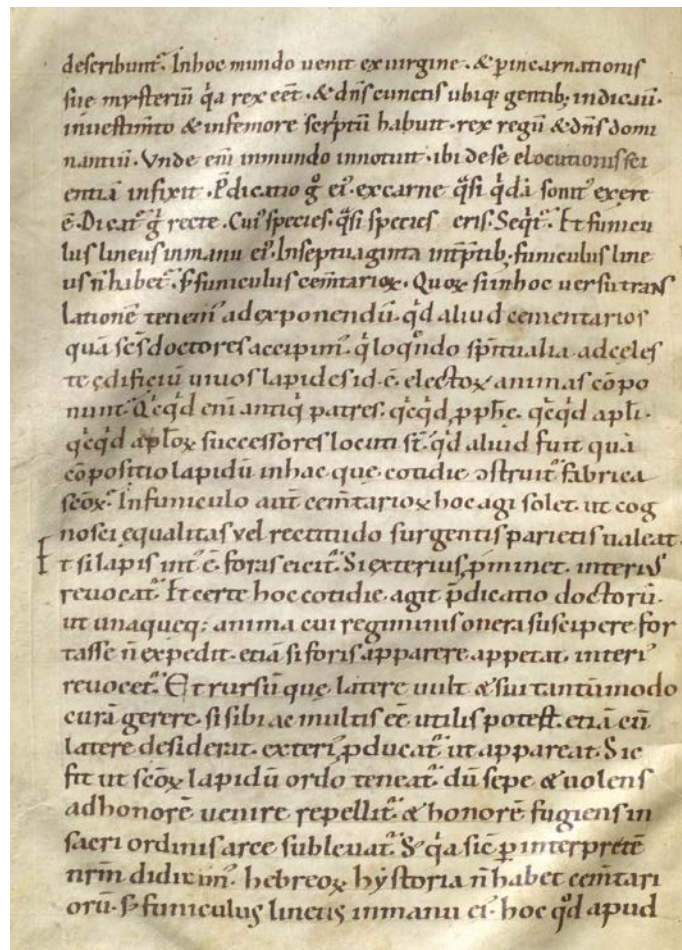 describunt᷑. Inhoc mundo uenit exuirgine. & ꝑincarnationis
sue mysteriū q̇a rex eēt. & dn̄s cunctis ubiq; gentib; indicauit.
inuestim̄to & infemore scriptū habuit. rex regū & dn̄s domi
nantiū. Vnde eni inmundo innotuit. ibi dese elocutionis sci
entiā infixit. P̄dicatio g̊ ei᷒. excarne q̇si q̇dā sonit᷒ exere
ē. Dicat᷑ g̊ recte. Cui᷒ species. q̇si species eris. Seqit᷑. Et funicu
lus lineus inmanu ei᷒. Inseptuaginta int̄ptib; funiculus line
us n̄ habet᷑. s; funiculus cem̄tarioꝝ. Quoꝝ siinhoc uersu trans
lationē tenem᷒ adexponendū. q̇d aliud cementarios
quā scōs doctores accipim᷒. q̇ loq̄ndo sp̄ritualia adceles
te ędificiū uiuos lapides id. ē. electoꝝ animas cōpo
nunt. Q̇cq̇d enī antiq̇ patres. q̇cq̇d ꝓphe. q̇cq̇d apl̄i.
q̇cq̇d apl̄oꝝ successores locuti st̄. q̇d aliud fuit quā
cōpositio lapidū inhac que cotidie ↄstruit᷑ fabrica
scōꝝ. Infuniculo aut̄ cem̄tarioꝝ hoc agi solet. ut cog
nosci ęqualitas vel rectitudo surgentis parietis ualeat.
Et si lapis int᷒ ē. foras eicit᷑. Si exterius ꝓminet. interius
reuocat᷑. Et certe hoc cotidie agit p̄dicatio doctorū.
ut unaqueq; anima cui regiminis onera suscipere for
tasse n̄ expedit. etiā si foris apparere appetat. interi᷒
reuocet᷑. Et rursū quę latere uult & sui tantūmodo
curā gerere. si sibi ac multis eē utilis potest. etiā cū
latere desiderat. exteri᷒ ꝓducat᷑ ut appareat. Sic
fit ut scōꝝ lapidū ordo teneat᷑. dū sepe & uolens
adhonorē uenire repellit᷑. & honorē fugiens in
sacri ordinis arce subleuat᷑. S; q̇a sic ꝑ interpretē
nr̄m didicim᷒. hebreoꝝ hystoria n̄ habet cem̄tari
orū. s; funiculus lineus inmanu ei᷒. hoc q̇d apud